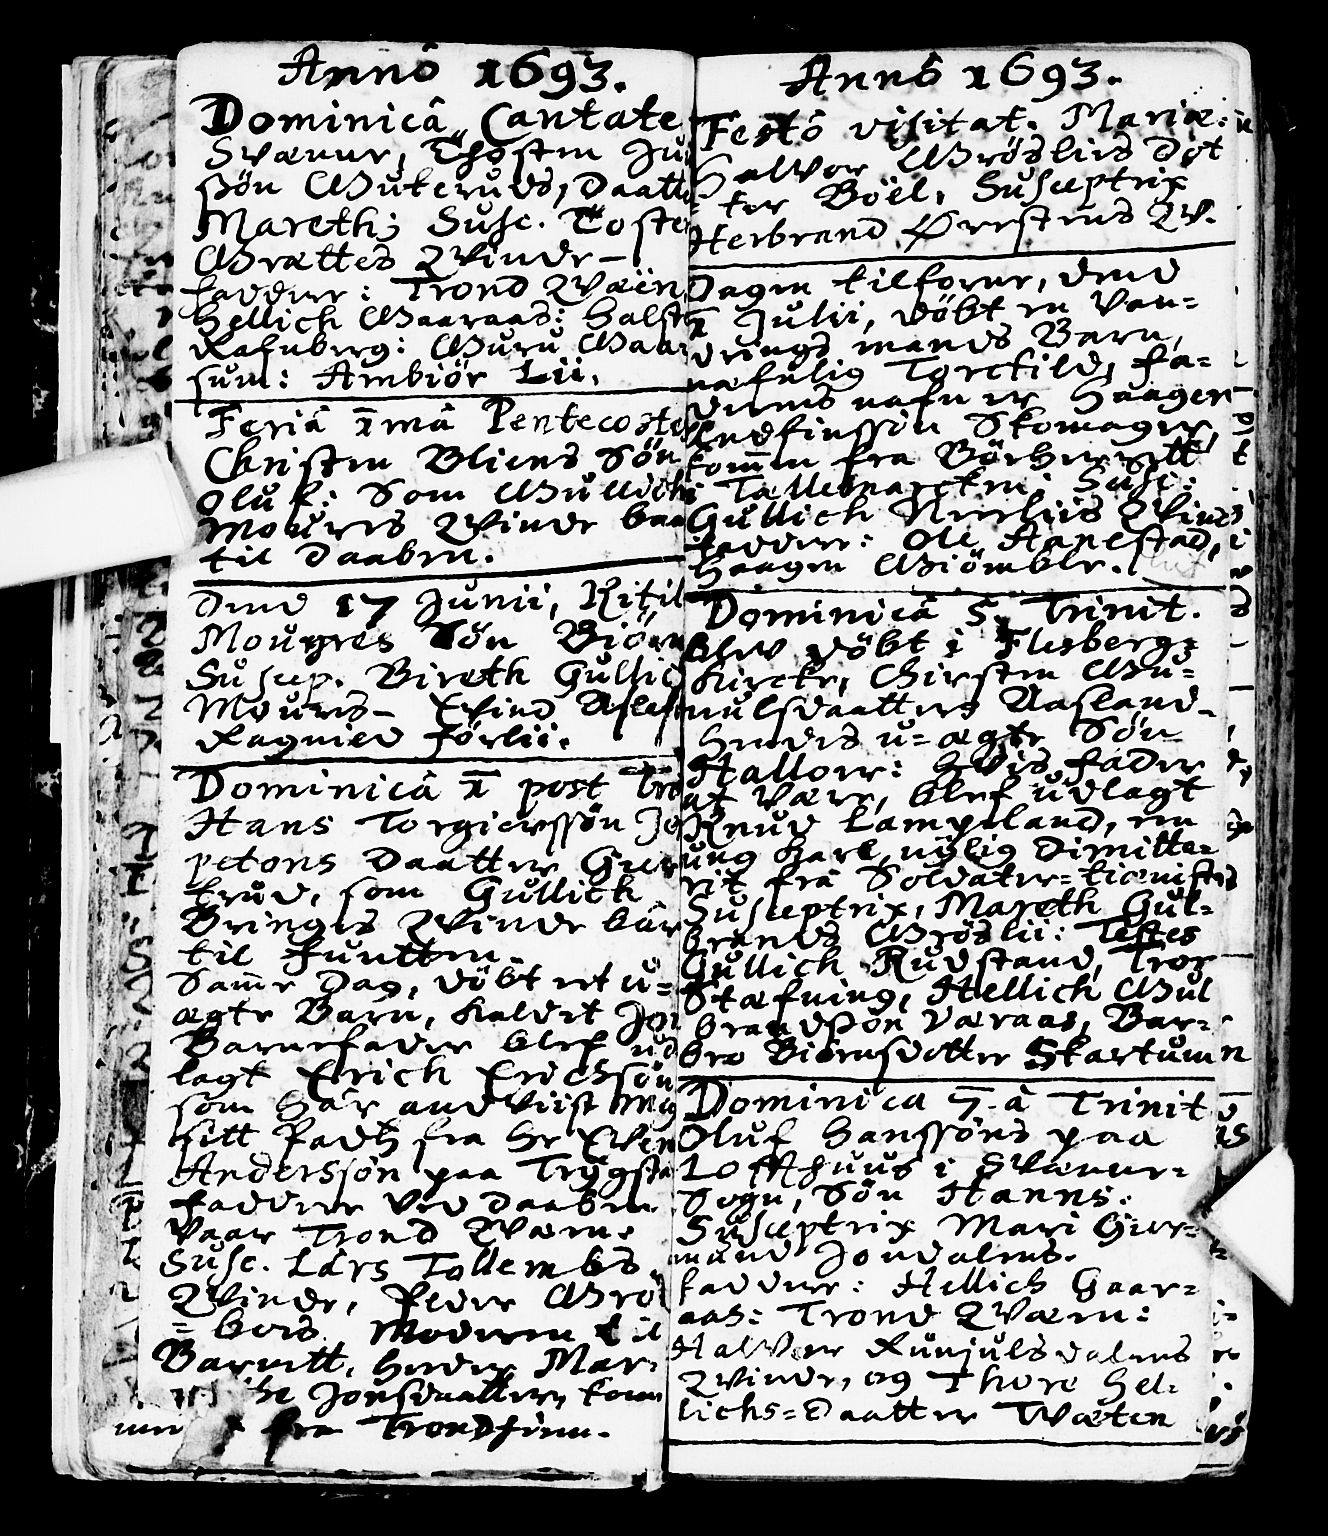 Anno 1693.
Dominicâ Cantate
Svæner, Thosten Ju
sön Gukeruds, Daatt
Mareth; Susc. Toste
Grættes Qvinde-
faddere: Trond Qvæen
Hellich Gaaraas: Halst
Rafnberg: Guru Gaa
sum: Ambiör Lii.
Feriâ 1mâ Pentecoste
Christen Bliens Sön
Oluf: Som Gullich
Moures Qvinde baa
til Daaben.
Dend 17 Junii, Kitil
Mougres Sön Biör
Suscep. Bireth Gullic
Mouris- Evind Aslef
Ragnied förlii.
Dominicâ 1 post Tri
Hans Torgierssön Jo
petons Daatter Gier
trud, som Gullich
Bringes Qvinde bar
til funtten.
Samme Dag, döbt et u=
ægte Barn, kaldet Jon
Barnefader blef ud
lagt Erich Erichsön
som har andviist
sitt Pasz fra Hr Even
Anderssön paa Trygsta
faddere ved Daaben
vaar Trond Qværn.
Susc. Lars Tollembs
Qvinde, Peder Grö
= bers. Moderen til
Barnett, heder Mar=
the Jonsdaatter, kom
fra Trondhiem.
Anno 1693.
Festô visitat. Mariæ:
Halvor Gröslies Dot
ter Böel. Susceptrix
Herbrand Örrstens Qv.
Dagen tilforne, dend
1 Julii, döbt en Van=
drings mands Barn,
nafnlig Torckild, fa=
derens nafn er Haagen
Endfinssön Skomager,
kommen fra Böeherrett
i Tællemarcken. Susc:
Gullich Neerliis Qvind
faddere: Ole Aanestad,
Haagen Giömble.
Dominicâ 5. Trinit.
blev döbt i Flesberg=
Kircke, Giersten Gu=
nulsdaatters Aasland-
hendes u=ægte Sön
Hallow: hvis fader
at være, blef udlagt
Knud Lampeland, en
ung karl, nylig dimitte=
rit fra Soldater=tienisten
Susceptrix, Mareth Gul=
brands Gröslii: Testes
Gullich Rudstand, Tror
Stæfning, Hellich Gul
brandssön Varaas, Bar=
bro Biörnsdotter Skartum
Dominica 7. â Trinit
Oluf Hanssöns paa
Loffthuus i Svæner=
Sogn, Sön Hanns.
Susceptrix Mari Gier=
mund Jondalens.
faddere: Hellich Gaar=
aas: Trond Qværn:
Halvor Runjulsdalens
Qvinde, og Thore Hel=
lichs=Daatter Wæten